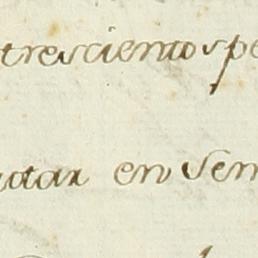 trescientos pe
tar en Sem